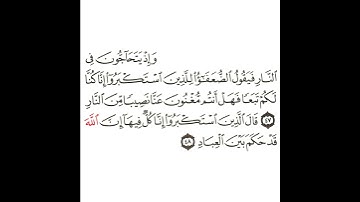 وَإِذْ يَتَحَآجُّونَ فِى
ٱلنَّارِ فَيَقُولُ ٱلضُّعَفَـٰٓؤُا۟ لِلَّذِينَ ٱسْتَكْبَرُوٓا۟ إِنَّا كُنَّا
لَكُمْ تَبَعًا فَهَلْ أَنتُم مُّغْنُونَ عَنَّا نَصِيبًا مِّنَ ٱلنَّارِ
٤٧ قَالَ ٱلَّذِينَ ٱسْتَكْبَرُوٓا۟ إِنَّا كُلٌّ فِيهَآ إِنَّ ٱللَّهَ
قَدْ حَكَمَ بَيْنَ ٱلْعِبَادِ ٤٨